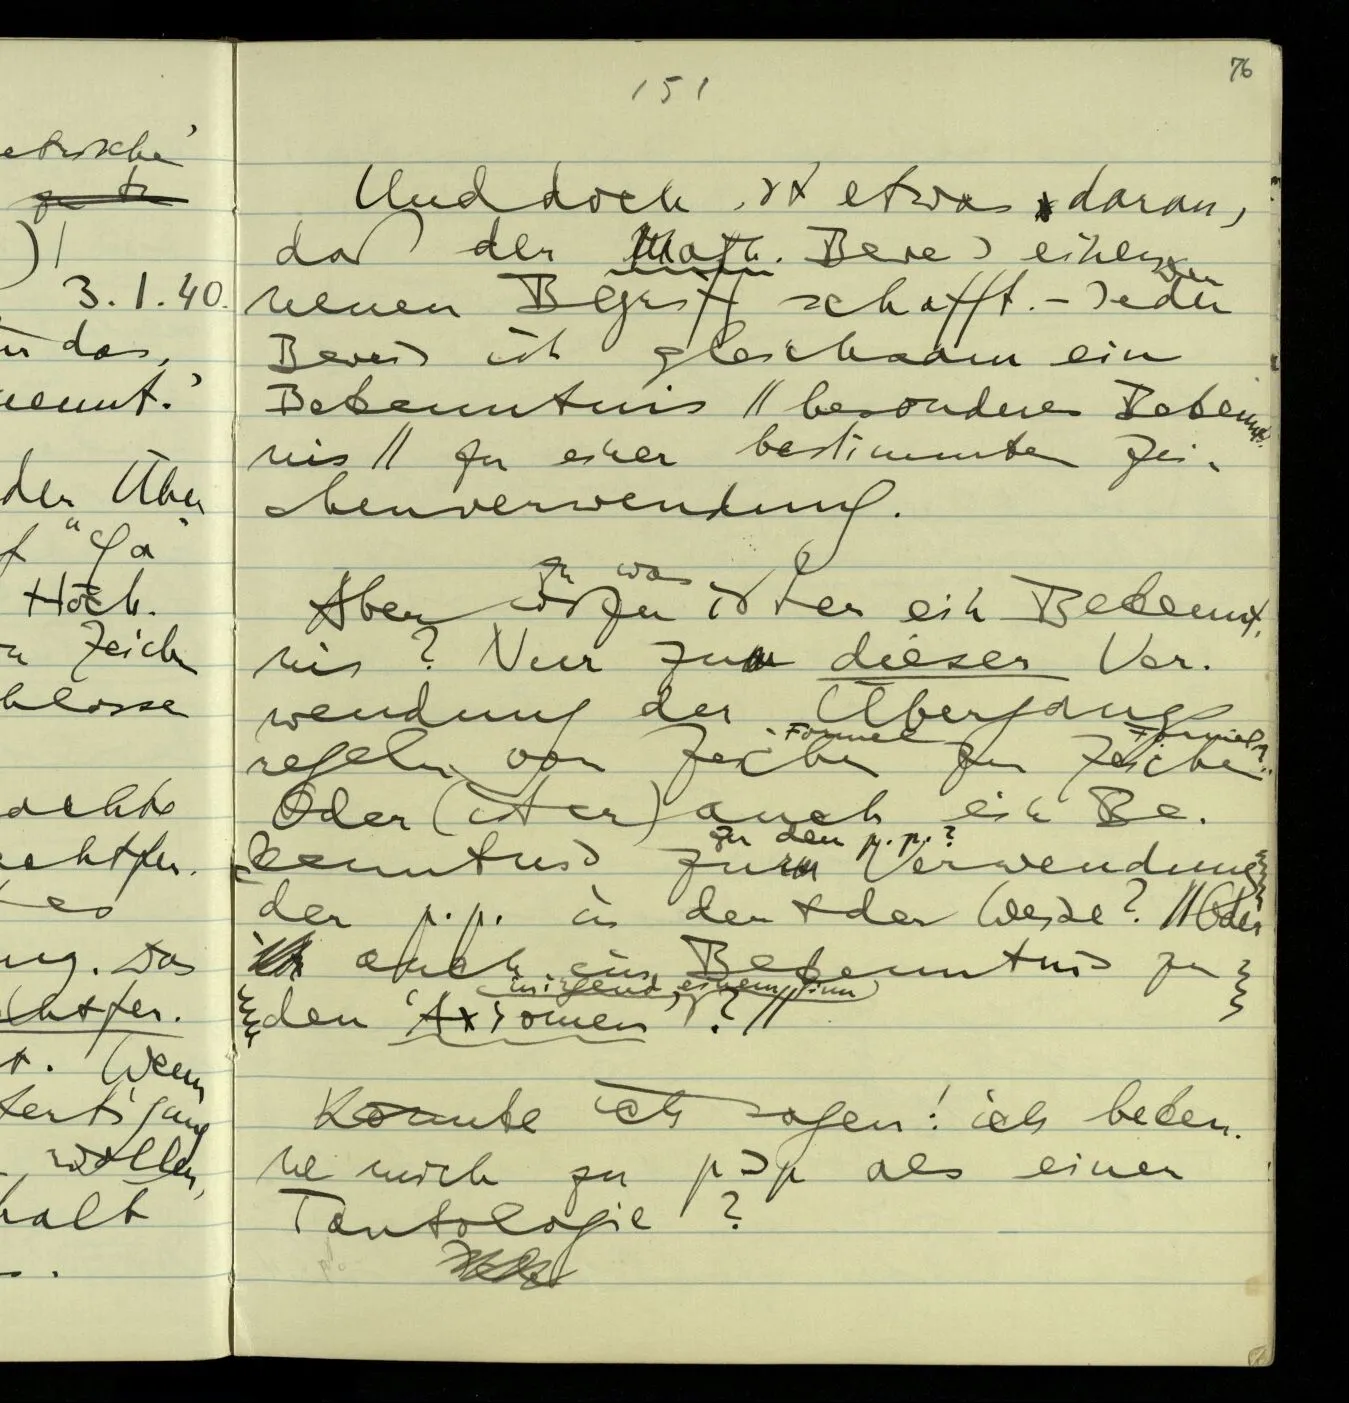 76
151
etrische'
3.1.40.
das,
nennt.'
der Über
"Ga"
Hoch.
Zeichen
blosse
achte
echtfer.
es
ung. Das
chtfer.
t. Wenn
fertigung
wollen,
halt
Und doch ist etwas daran,
daß der Math. Beweis einen
neuen Begriff schafft. – Jeder
Beweis ist gleichsam ein
Bekenntnis // besonderes Bekennt-
nis // zu einer bestimmten Zei-
chenverwendung.
zu was
Aber ist er ein Bekennt-
nis? Nur zu dieser Ver-
wendung der Übergangs
Formel Formeln?
regeln von Zeichen zu Zeichen
Oder (ist er) auch ein Be-
zu den p.p.?
kenntnis zur Verwendung
der p.p. in der & der Weise? // Oder
auch ein Bekenntnis zu
in irgend einem Sinn
den 'Axiomen'? //
Könnte ich sagen: ich beken-
ne mich zu p⊃p als einer
Tautologie?